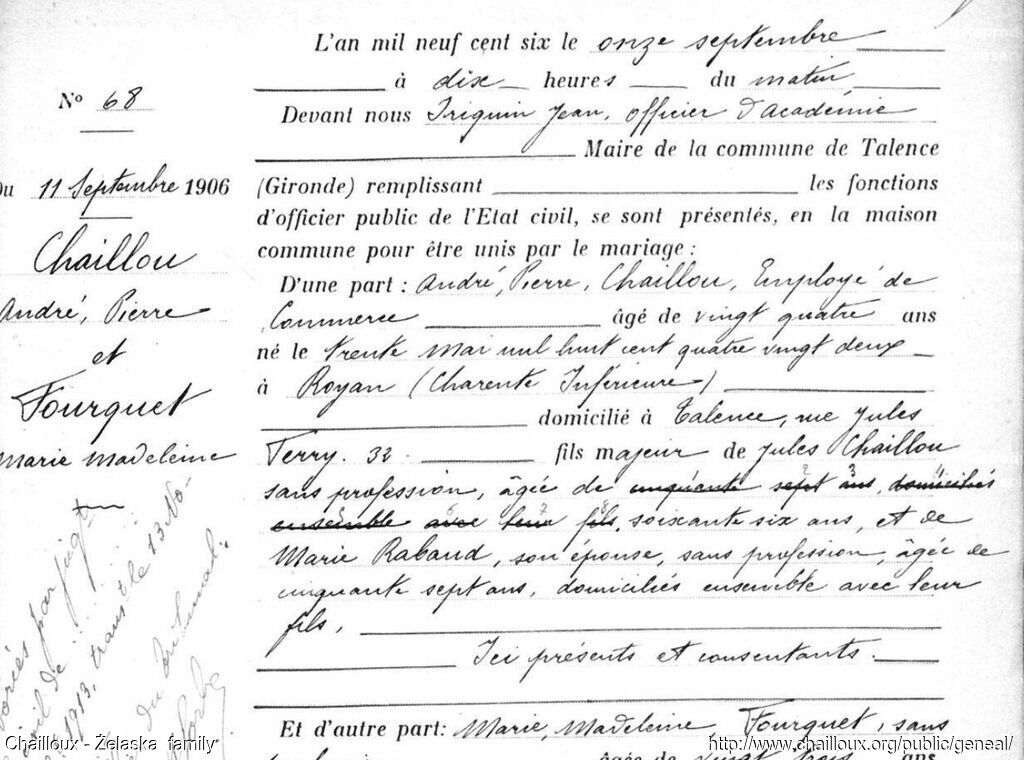 L'an mil neuf cent six le onze septembre
à dix heures du matin
Nº 68
Devant nous Triquin Jean, officier d'académie
Maire de la commune de Talence
Du 11 Septembre 1906
(Gironde) remplissant les fonctions
d'officier public de l'Etat civil, se sont présentés, en la maison
commune pour être unis par le mariage :
Chaillou
André, Pierre
et
Fourquet
Marie Madeleine
D'une part : André, Pierre, Chaillou, Employé de
Commerce âgé de vingt quatre ans
né le trente mai mil huit cent quatre vingt deux
à Royan (Charente Inférieure)
domicilié à Talence, rue Jules
Ferry. 32. fils majeur de Jules Chaillou
sans profession, âgée de cinquante sept ans, domiciliés
ensemble avec leur fils, soixante six ans, et de
Marie Rabaud, son épouse, sans profession, âgée de
cinquante sept ans, domiciliés ensemble avec leur
fils,
Ici présents et consentants.
par jug
civil de
1913, transc le 13 No-
du
Et d'autre part: Marie, Madeleine Fourquet, sans
âgée de vingt trois ans
Chailloux - Zelaska family
http://www.chailloux.org/public/geneal/